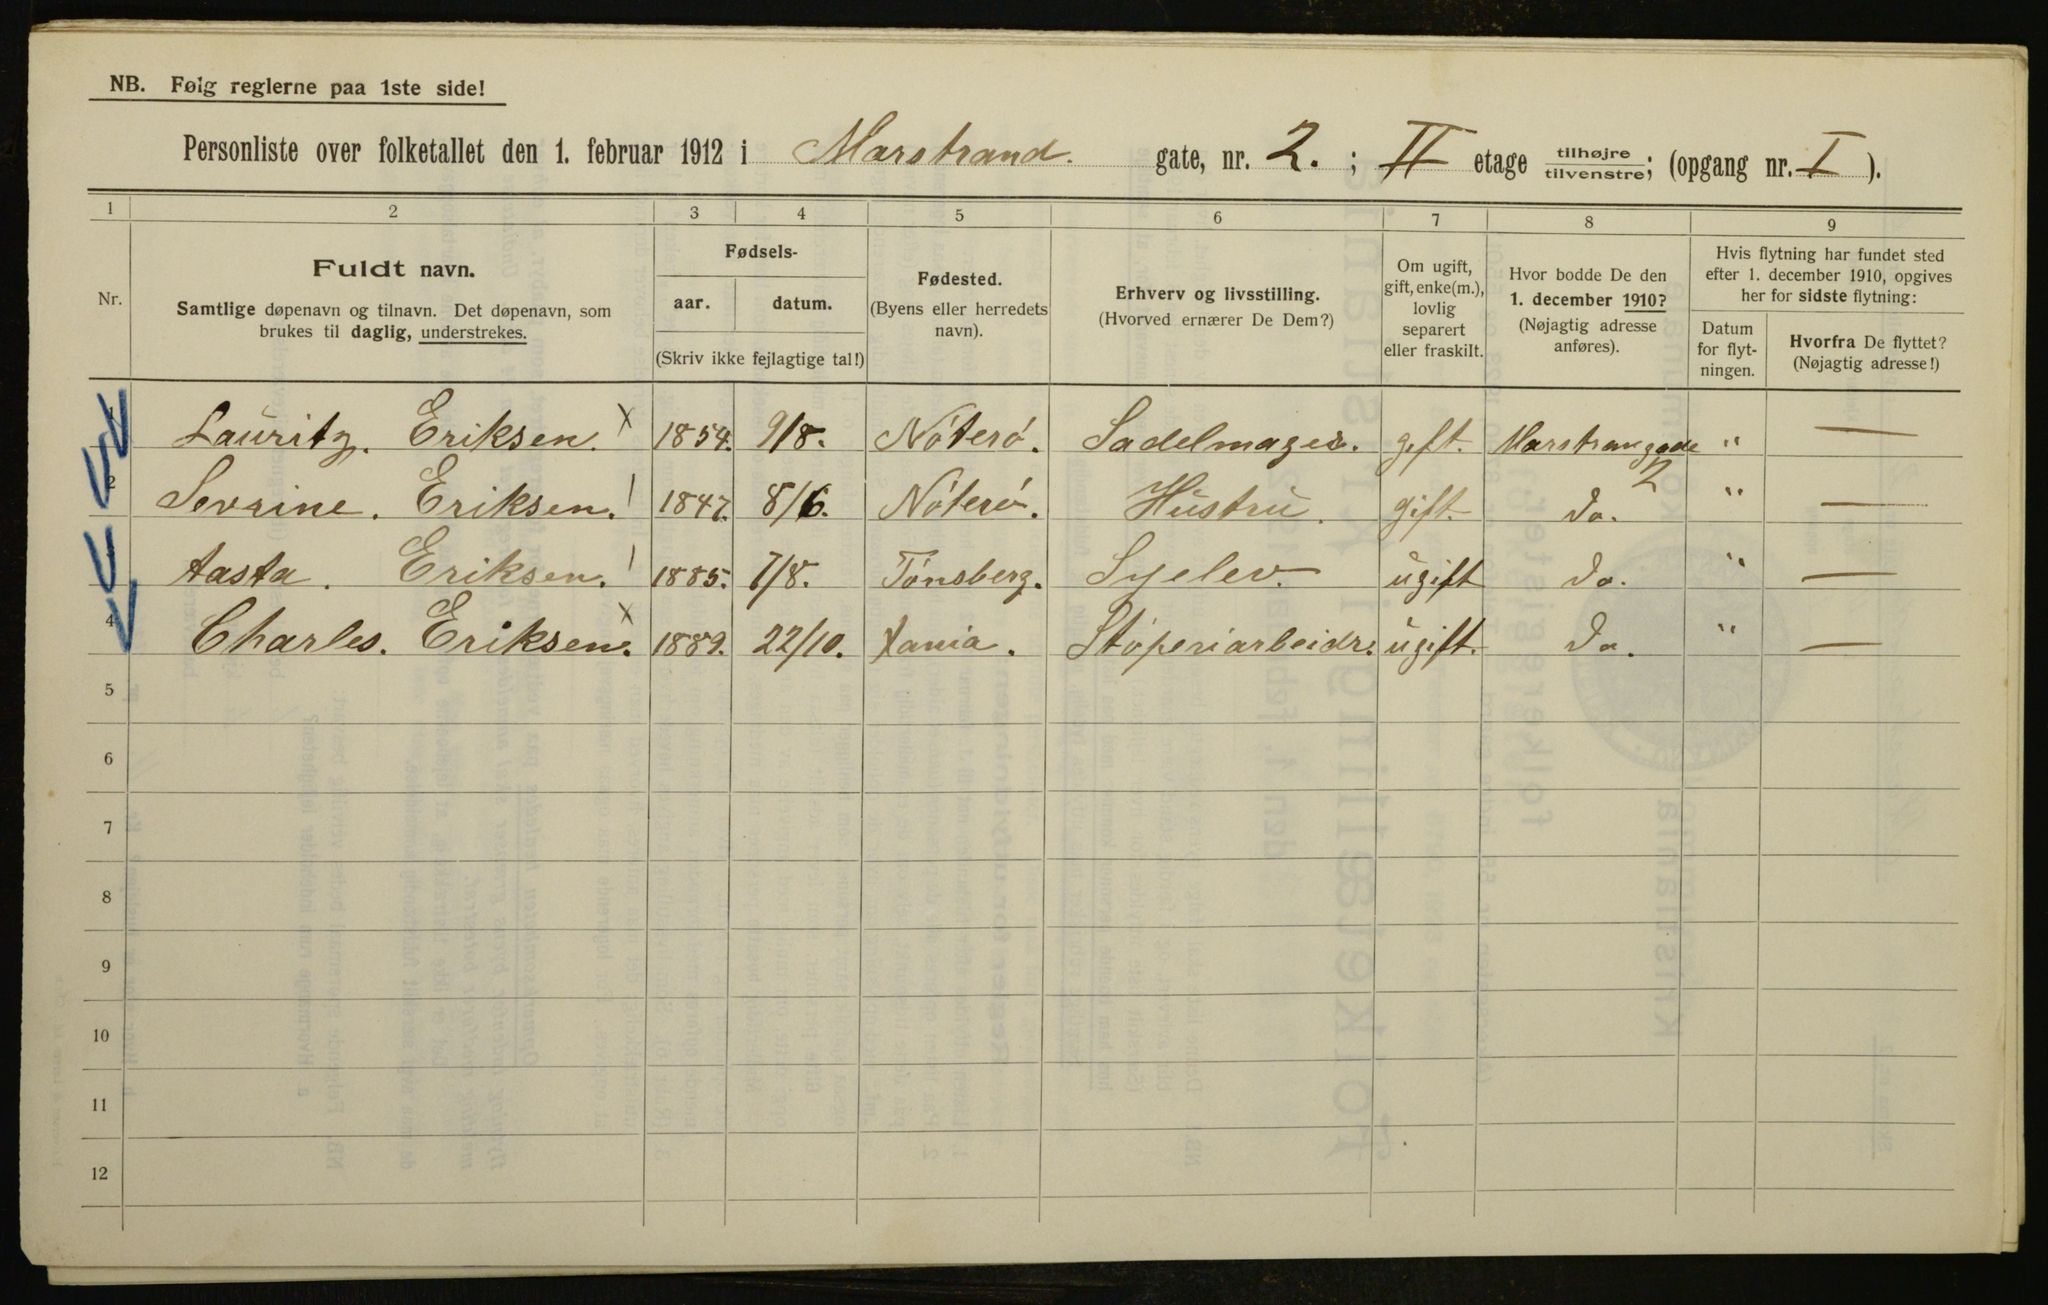 NB. Følg reglerne paa 1ste side!
Personliste over folketallet den 1. februar 1912 i Marstrand. gate, nr. 2. ; II etage tilhøjre tilvenstre; (opgang nr. I ).
1 2 3 4 5 6 7 8 9
Nr.
Fuldt navn.
Samtlige døpenavn og tilnavn. Det døpenavn, som
brukes til daglig, understrekes.
Fødsels-
aar. datum.
(Skriv ikke fejlagtige tal!)
Fødested.
(Byens eller herredets
navn).
Erhverv og livsstilling.
(Hvorved ernærer De Dem?)
Om ugift,
gift, enke(m.),
lovlig
separert
eller fraskilt.
Hvor bodde De den
1. december 1910?
(Nøjagtig adresse
anføres).
Hvis flytning har fundet sted
efter 1. december 1910, opgives
her for sidste flytning:
Datum
for flyt-
ningen.
Hvorfra De flyttet?
(Nøjagtig adresse!)
1 Lauritz. Eriksen. x 1854. 9/8. Nóteró. Sadelmager. gift. Marstrangade 2 " —
2 Sevrine. Eriksen. / 1847. 8/6. Nóteró. Hustru. gift. Do. " —
3 Aasta. Eriksen. / 1885. 7/8. Tónsberg. Syelev. ugift Do. " —
4 Charles. Eriksen. x 1889. 22/10. Xania. Stóperiarbeidr. ugift. Do. " —
5
6
7
8
9
10
11
12